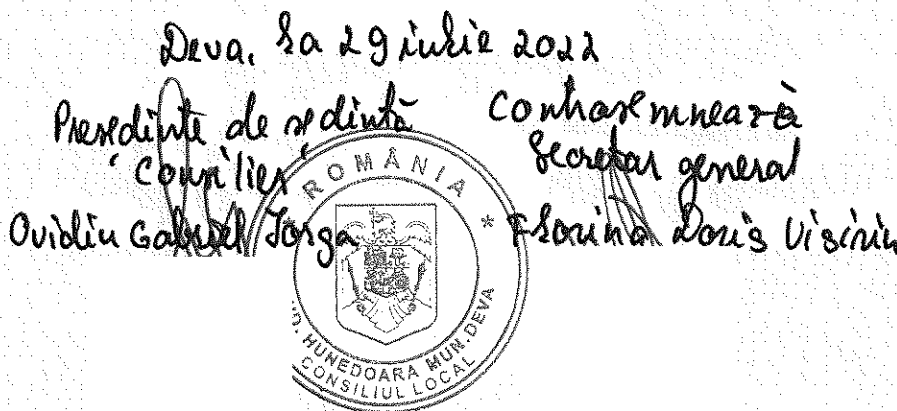 Deva, la 29 iulie 2022
Președinte de ședință
Consilier
Ovidiu Gabriel Iorga
Contrasemnează
Secretar general
Florina Doris Visirin
ROMÂNIA
JUD. HUNEDOARA MUN. DEVA
CONSILIUL LOCAL